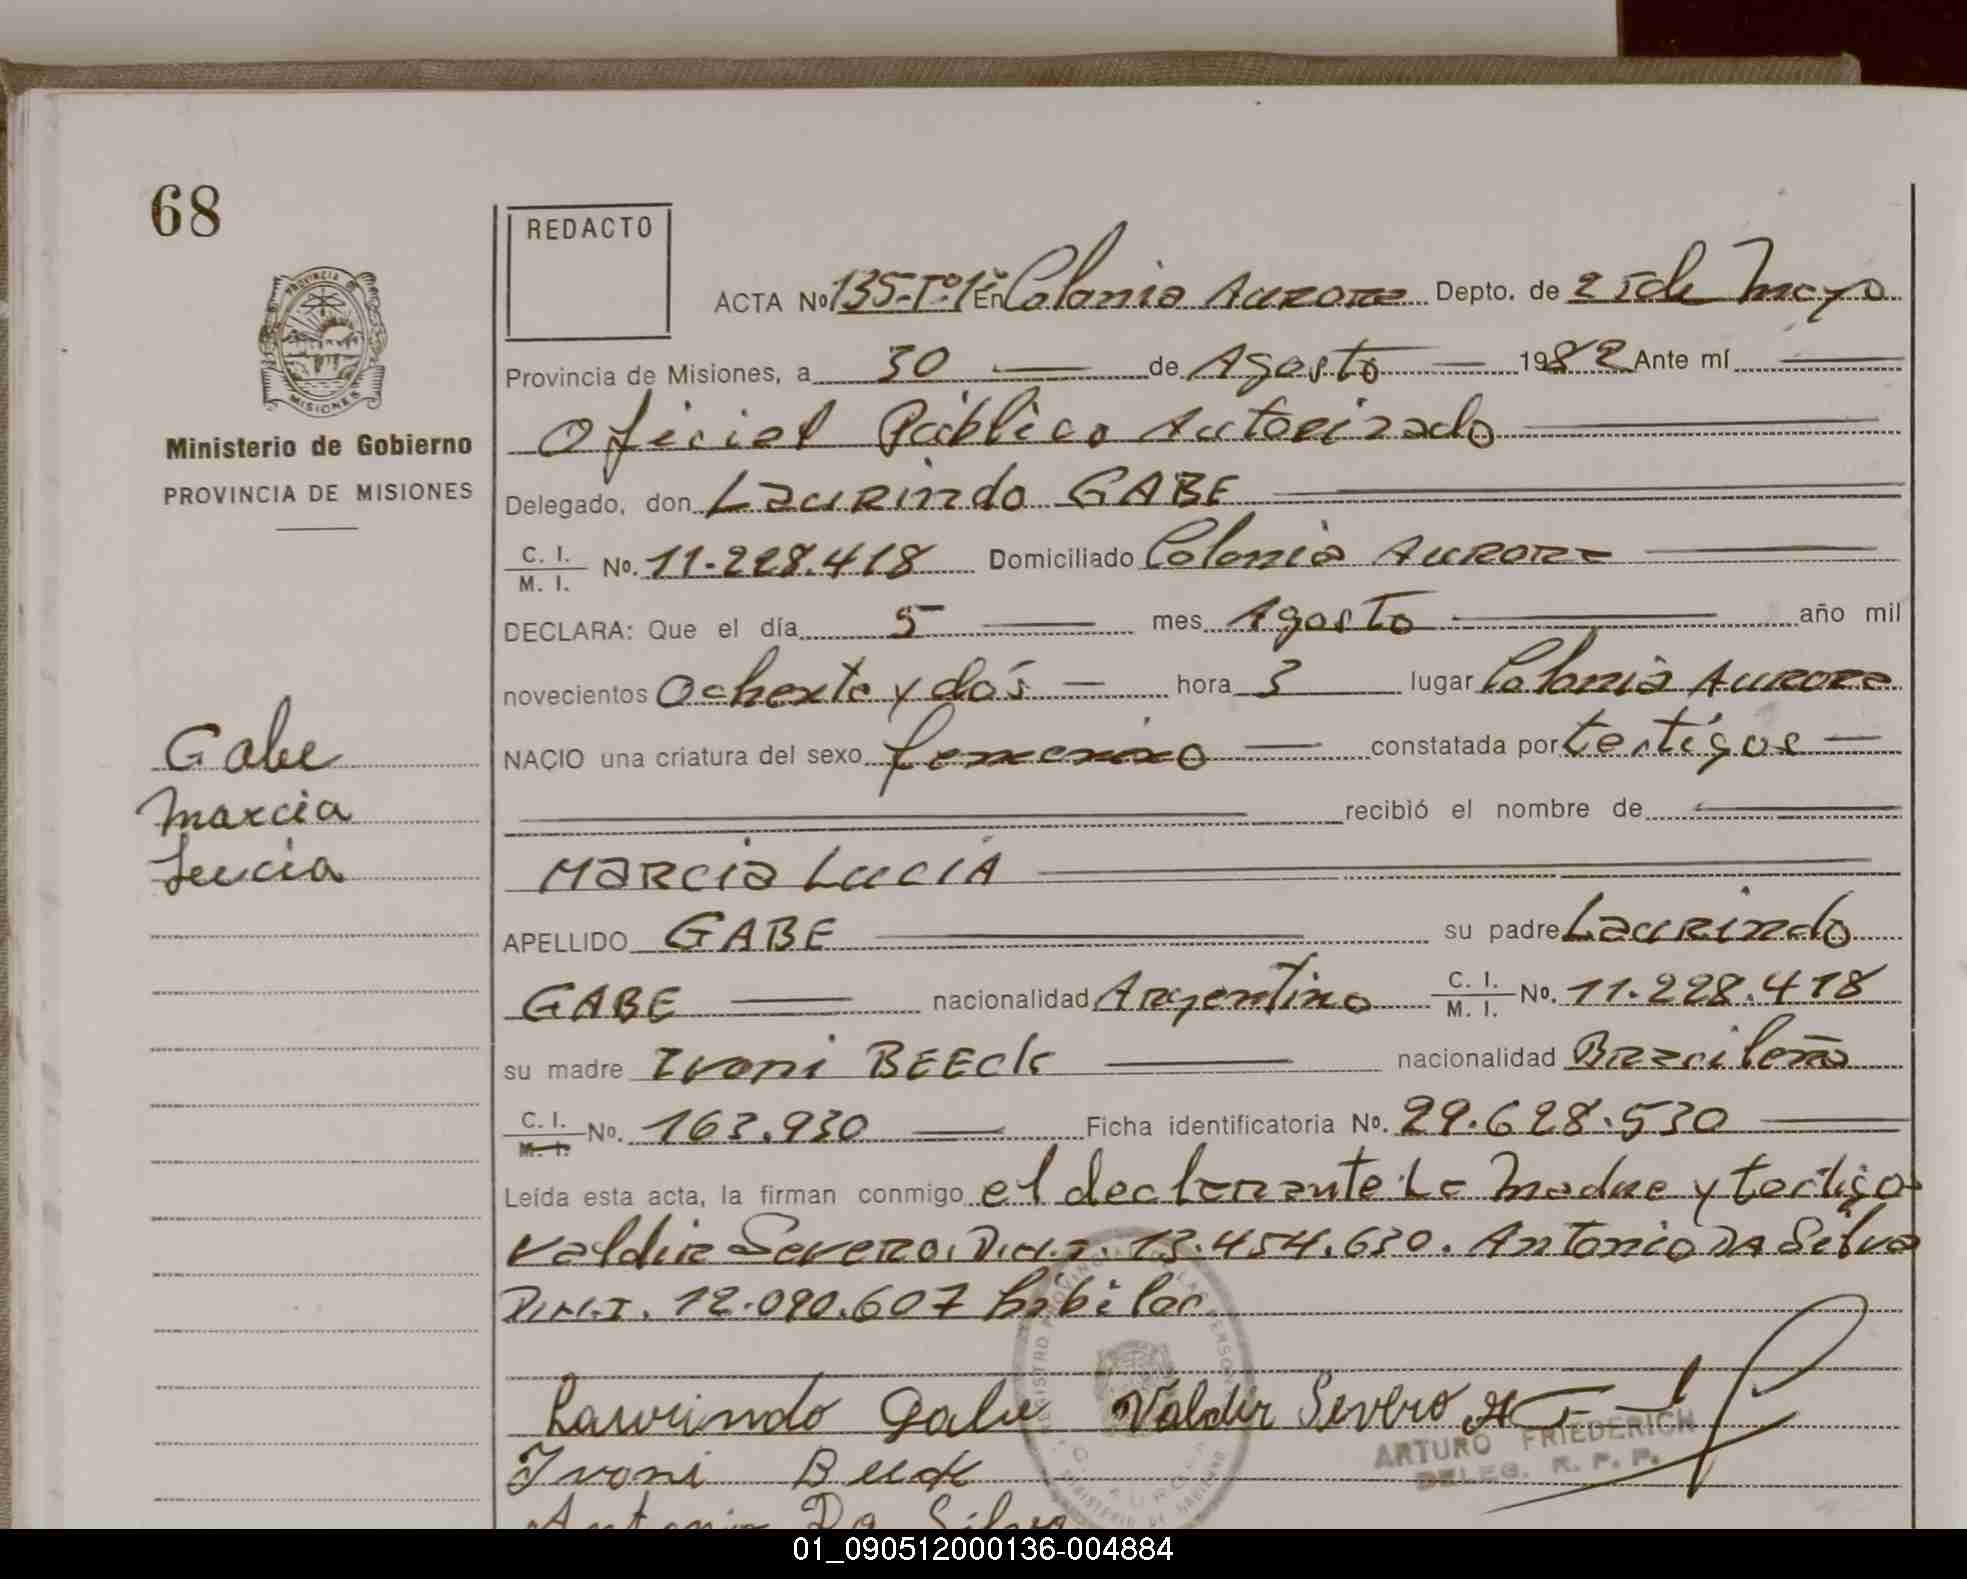 68
REDACTO
PROVINCIA DE
MISIONES
Ministerio de Gobierno
PROVINCIA DE MISIONES
ACTA No 135-Tº1º En Colonia Aurora Depto. de 25 de Mayo
Provincia de Misiones, a 30 de Agosto 1982 Ante mí
Oficial Público Autorizado
Delegado, don Laurindo GABE
C. I. / M. I. No. 11.228.418 Domiciliado Colonia Aurora
DECLARA: Que el día 5 mes Agosto año mil
novecientos Ochenta y dós hora 3 lugar Colonia Aurora
NACIO una criatura del sexo femenino constatada por testigos
recibió el nombre de
Gabe
Marcia
Lucia
MARCIA LUCIA
APELLIDO GABE su padre Laurindo
GABE nacionalidad Argentino C. I. / M. I. No. 11.228.418
su madre Ivoni BEECK nacionalidad Brasileña
C. I. / M. I. No. 163.930 Ficha identificatoria No. 29.628.530
Leída esta acta, la firman conmigo el declarante La Madre y testigos
Valdir Severo. D.N.I. 13.454.630. Antonio DA Silva
D.N.I. 12.090.607 hábiles
Laurindo Gabe Valdir Severo
ARTURO FRIEDERICH
DELEG. R. P. P.
Ivoni Beck
Antonio Da Silva
01_090512000136-004884